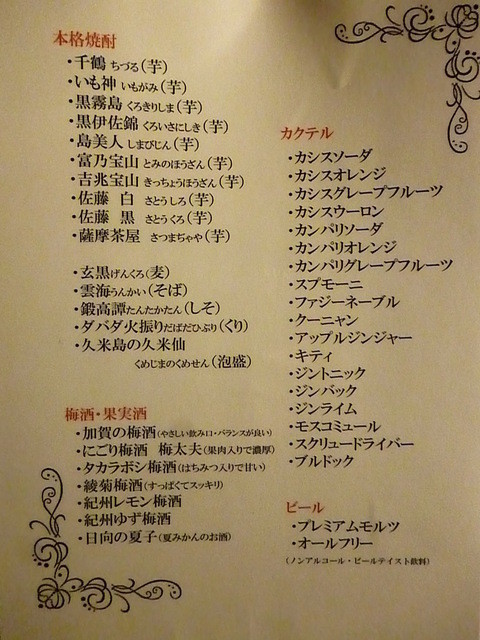 本格焼酎
・千鶴 ちづる(芋)
・いも神 いもがみ(芋)
・黒霧島 くろきりしま(芋)
・黒伊佐錦 くろいさにしき(芋)
・島美人 しまびじん(芋)
・富乃宝山 とみのほうざん(芋)
・吉兆宝山 きっちょうほうざん(芋)
・佐藤 白 さとうしろ(芋)
・佐藤 黒 さとうくろ(芋)
・薩摩茶屋 さつまぢゃや(芋)
・玄黒げんくろ(麦)
・雲海うんかい(そば)
・鍛高譚たんたかたん(しそ)
・ダバダ火振りだばだひぶり(くり)
・久米島の久米仙
くめじまのくめせん(泡盛)
梅酒・果実酒
・加賀の梅酒(やさしい飲み口・バランスが良い)
・にごり梅酒 梅太夫(果肉入りで濃厚)
・タカラボシ梅酒(はちみつ入りで甘い)
・綾菊梅酒(すっぱくてスッキリ)
・紀州レモン梅酒
・紀州ゆず梅酒
・日向の夏子(夏みかんのお酒)
カクテル
・カシスソーダ
・カシスオレンジ
・カシスグレープフルーツ
・カシスウーロン
・カンパリソーダ
・カンパリオレンジ
・カンパリグレープフルーツ
・スプモーニ
・ファジーネーブル
・クーニャン
・アップルジンジャー
・キティ
・ジントニック
・ジンバック
・ジンライム
・モスコミュール
・スクリュードライバー
・ブルドック
ビール
・プレミアムモルツ
・オールフリー
(ノンアルコール・ビールテイスト飲料)